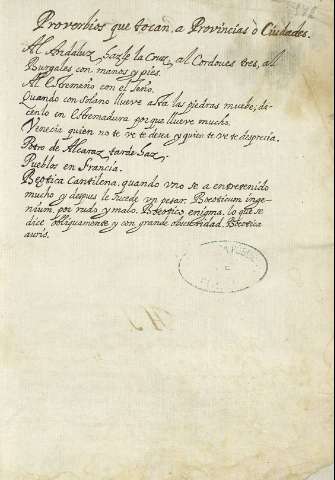 Proverbios que tocan, a Provincias ò Ciudades.
Al Andaluz hazle la Cruz, al Cordoues tres, al
Burgales con manos y pies.
Al Estremeño con el leño.
Quando con solano llueve asta las piedras mueve; di-
cenlo en Estremadura por que llueve mucho.
Venecia quien no te ve te desea y quien te ve te desprecia.
Potro de Alcaraz tarde haz
Pueblos en Francia.
Beotica Cantilena, quando vno se a entretenido
mucho y despues le sucede vn pesar. Beoticum inge-
nium, por rudo y malo. Beotico enigma, lo que se
dice obliquamente y con grande obscuridad. Beotica
auris.